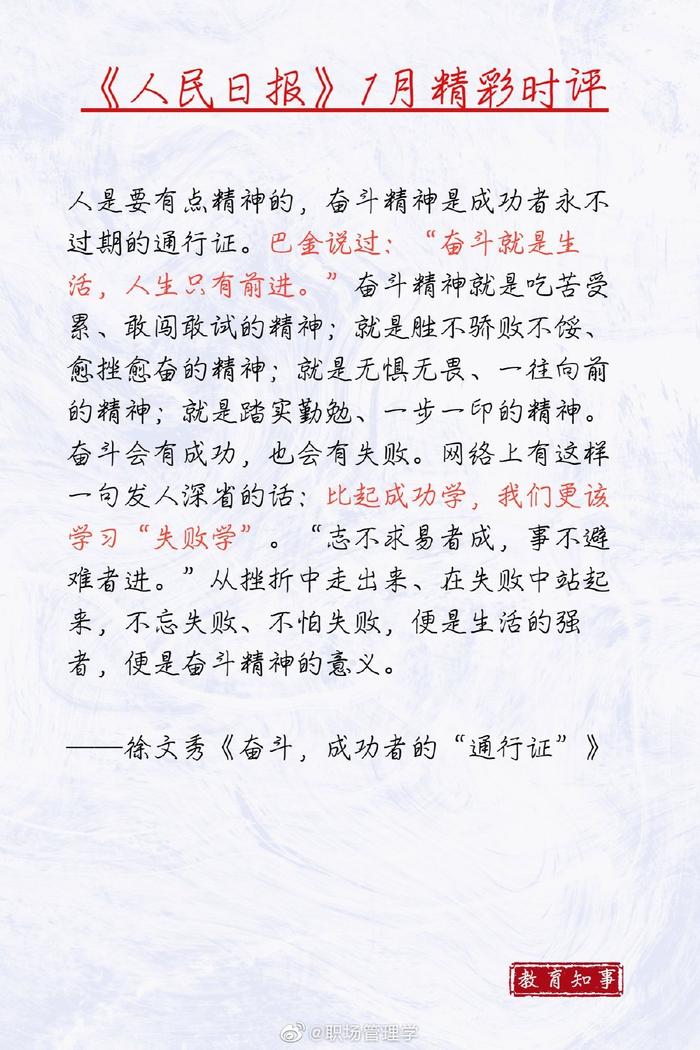 《人民日报》1月精彩时评
人是要有点精神的，奋斗精神是成功者永不
过期的通行证。巴金说过：“奋斗就是生
活，人生只有前进。”奋斗精神就是吃苦受
累、敢闯敢试的精神；就是胜不骄败不馁、
愈挫愈奋的精神；就是无惧无畏、一往向前
的精神；就是踏实勤勉、一步一印的精神。
奋斗会有成功，也会有失败。网络上有这样
一句发人深省的话：比起成功学，我们更该
学习“失败学”。“志不求易者成，事不避
难者进。”从挫折中走出来、在失败中站起
来，不忘失败、不怕失败，便是生活的强
者，便是奋斗精神的意义。
——徐文秀《奋斗，成功者的“通行证”》
教育知事
@职场管理学